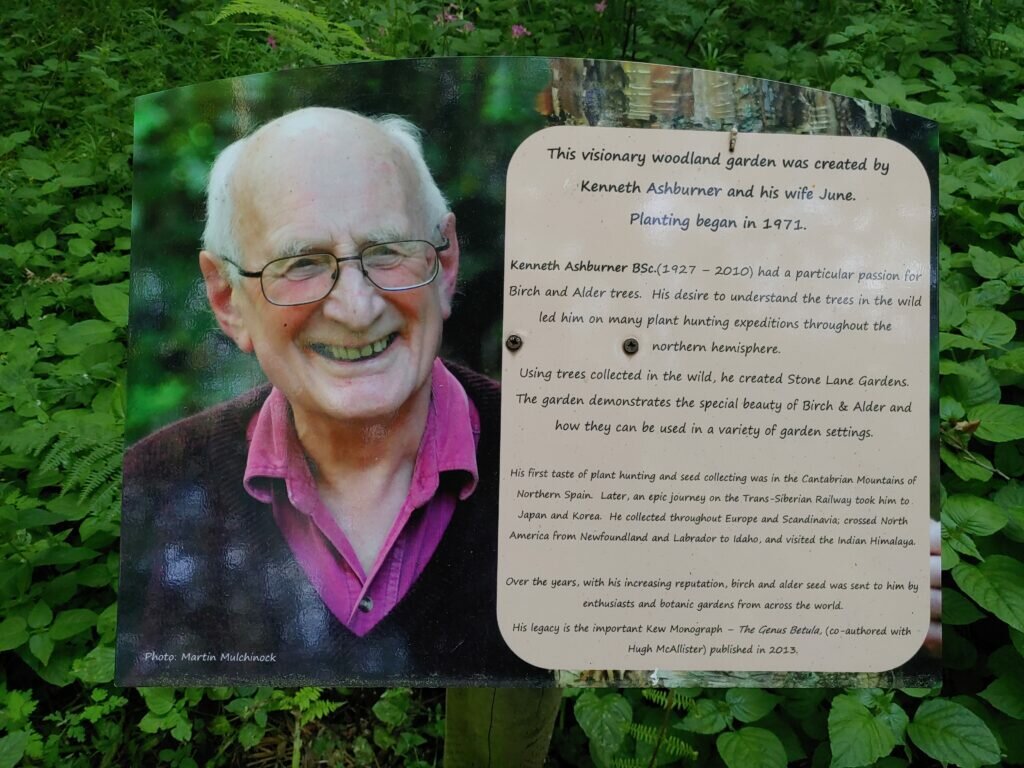 This visionary woodland garden was created by
Kenneth Ashburner and his wife June.
Planting began in 1971.
Kenneth Ashburner BSc.(1927 – 2010) had a particular passion for
Birch and Alder trees. His desire to understand the trees in the wild
led him on many plant hunting expeditions throughout the
northern hemisphere.
Using trees collected in the wild, he created Stone Lane Gardens.
The garden demonstrates the special beauty of Birch & Alder and
how they can be used in a variety of garden settings.
His first taste of plant hunting and seed collecting was in the Cantabrian Mountains of
Northern Spain. Later, an epic journey on the Trans-Siberian Railway took him to
Japan and Korea. He collected throughout Europe and Scandinavia; crossed North
America from Newfoundland and Labrador to Idaho, and visited the Indian Himalaya.
Over the years, with his increasing reputation, birch and alder seed was sent to him by
enthusiasts and botanic gardens from across the world.
His legacy is the important Kew Monograph – The Genus Betula, (co-authored with
Hugh McAllister) published in 2013.
Photo: Martin Mulchinock